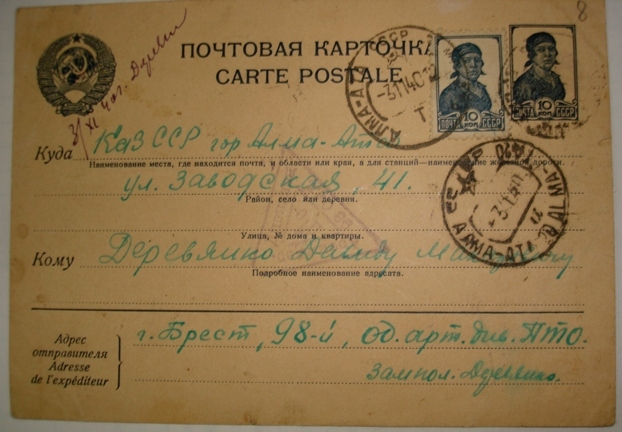 8
ПОЧТОВАЯ КАРТОЧКА
CARTE POSTALE
3/XI
АЛМА-АТА СССР
-3.11.40.12
Т
ПОЧТА 10 КОП. СССР
10 КОП.
Куда КазССР гор Алма-Ата
Наименование места, где находится почта, и области или края, а для станций—наименование железной дороги.
ул. Заводская, 41.
Район, село или деревня.
Улица, № дома и квартиры.
АЛМА-АТА
Кому Деревянко Давиду
Подробное наименование адресата.
Адрес отправителя
Adresse de l'expéditeur
г. Брест, 98-й, од. арт. див. ПТО.
зампол.